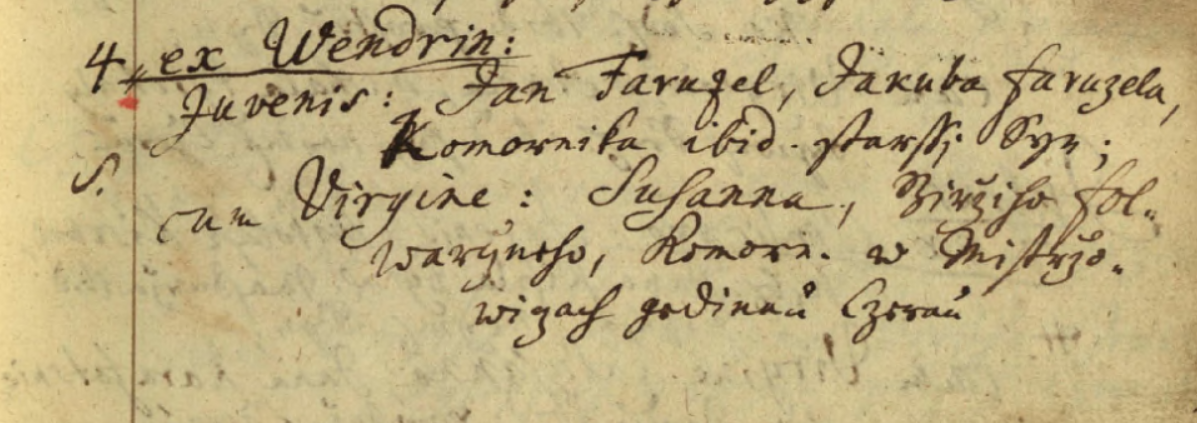 4. ex Wendrin:
Juvenis: Jan Faruzel, Jakuba Faruzela,
Komornika ibid. starssi Syn;
S.
cum Virgine: Susanna, Girziho Fol-
warczneho, Komorn. w Mistrzo-
wizach gedinau Czerau